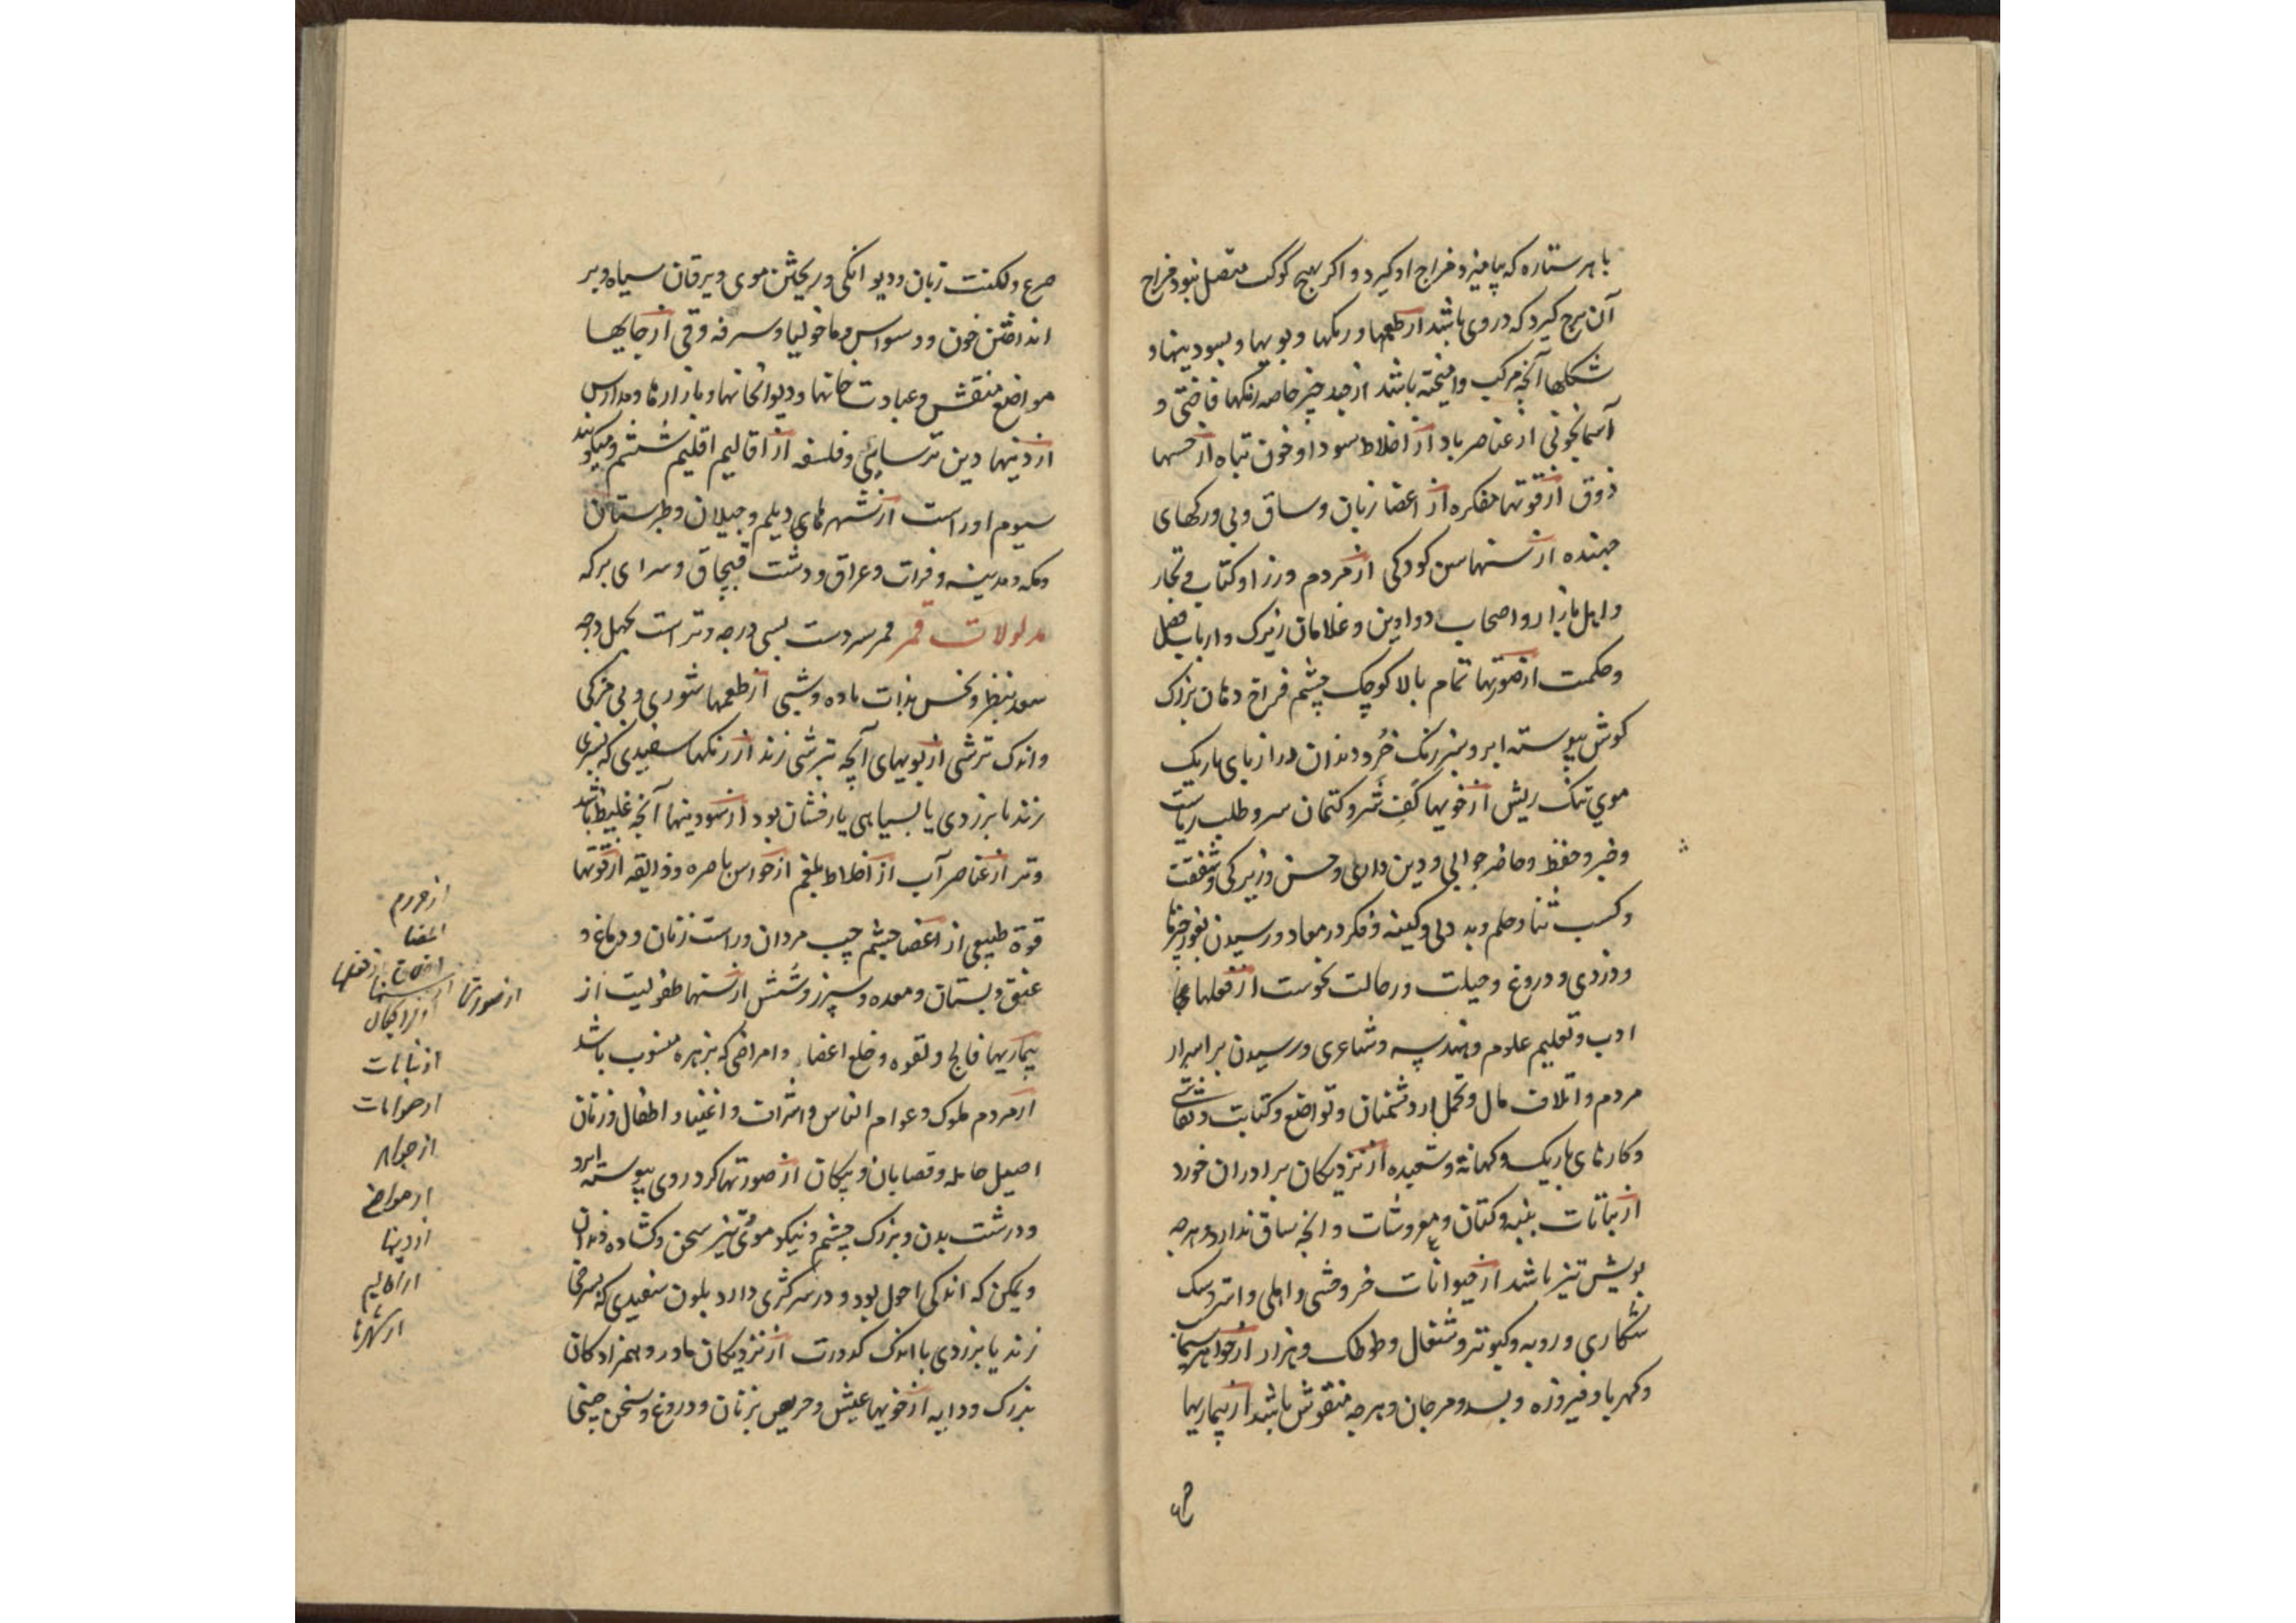 با هر ستاره که بیامیزد مزاج او گیرد و اگر بهیچ کوکب متصل نبود مزاج
آن برج گیرد که در وی باشد از طعمها و رنگها و بویها و بسودینها و
شکلها آنچه مرکب و آمیخته باشد از چند چیز خاصه رنگها فاختی و
آسمانجونی از عناصر باد از اخلاط سودا و خون تباه از حسها
ذوق از قوتها مفکره از اعضا زبان و ساق و پی و رکهای
جهنده از سنها سن کودکی از مردم وزرا و کتاب و تجار
و اهل بازار و اصحاب دواوین و غلامان زیرک و ارباب فضل
و حکمت از صورتها تمام بالا کوچک چشم فراخ دهان بزرک
کوش پیوسته ابرو سبز رنک خرد دندان دراز پای باریک
موی تنک ریش از خویها کف شر و کتمان سر و طلب ریاست
و خبر و حفظ و حاضر جوابی و دین داری و حسن و زیرکی و شفقت
و کسب ثنا و حلم و بد دلی و کینه و فکر در معاد و رسیدن بغور چیزها
و دزدی و دروغ و حیلت در حالت نحوست از فعلها
ادب و تعلیم علوم و هندسه و شاعری و رسیدن بر اسرار
مردم و اتلاف مال و تحمل از دشمنان و تواضع و کتابت و نقاشی
و کارهای باریک و کهانة و شعبده از نزدیکان برادران خورد
از نباتات پنبه و کتان و معروشات و آنچه ساق ندارد و هرچه
بویش تیز باشد از حیوانات خر وحشی و اهلی و استر و سک
شکاری و روبه و کبوتر و شغال و طوطک و هزار از جواهر سیماب
و کهربا و فیروزه و بسد و مرجان و هرچه منقوش باشد از بیماریها
صرع
صرع و لکنت زبان و دیوانکی و ریختن موی و یرقان سیاه و بر
انداختن خون و وسواس و ماخولیا و سرفه و قی از جایها
مواضع منقش و عبادت خانها و دیوانخانها و بازارها و مدارس
از دینها دین ترسایی و فلسفه از اقالیم اقلیم ششم و میکویند
سیوم او راست از شهرهای دیلم و جیلان و طبرستان
و مکه و مدینه و فرات و عراق و دشت قپچاق و سرای برکه
مدلولات قمر قمر سردست بسی درجه و تر است بچهل درجه
سعد بنظر و نحس بذات ماده و شبی از طعمها شوری و بی مزکی
و اندک ترشی از بویهای آنچه بترشی زند از رنکها سفیدی که بسبزی
زند یا بزردی یا بسیاهی یا رخشان بود از بسودینها آنچه غلیظ باشد
و تر از عناصر آب از اخلاط بلغم از حواس باصره و ذایقه از قوتها
قوة طبیعی از اعضا چشم چپ مردان و راست زنان و دماغ و
عنق و پستان و معده و سپرز و شش از سنها طفولیت از
بیماریها فالج و لقوه و خلع اعضا و امراضی که بزهره منسوب باشد
از مردم ملوک و عوام الناس و اشراف و اغنیا و اطفال و زنان
اصیل حامله و قصابان و پیکان از صورتها کرد روی پیوسته ابرو
و درشت بدن و بزرک چشم و نیکو موی تیز سخن و کشاده دندان
و یمکن که اندکی احول بود و در سر کژی دارد بلون سفیدی که بسرخی
زند یا بزردی با اندک کدورت از نزدیکان مادر و همزادکان
بزرک و دایه از خویها عیش و حریص بزنان و دروغ و سخن چینی
از مردم
اعضا
از فعلها
از صورتها از سنها
از نباتات
از حیوانات
از جواهر
از مواضع
از دینها
از اقالیم
از شهرها